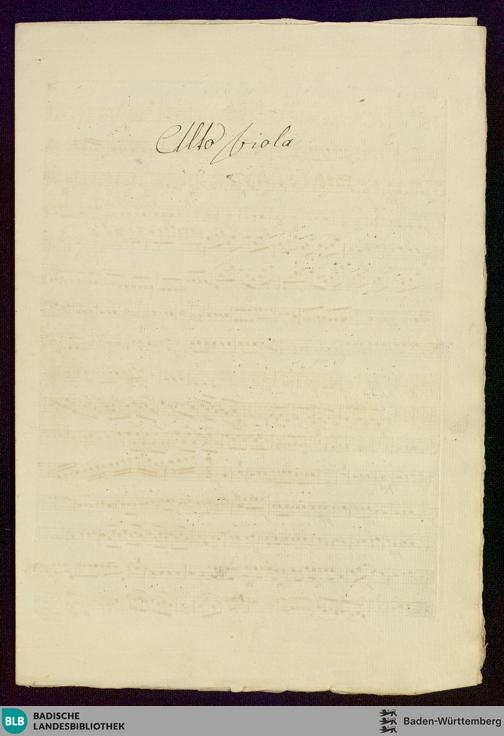 Alto Viola
BLB
BADISCHE
LANDESBIBLIOTHEK
Baden-Württemberg